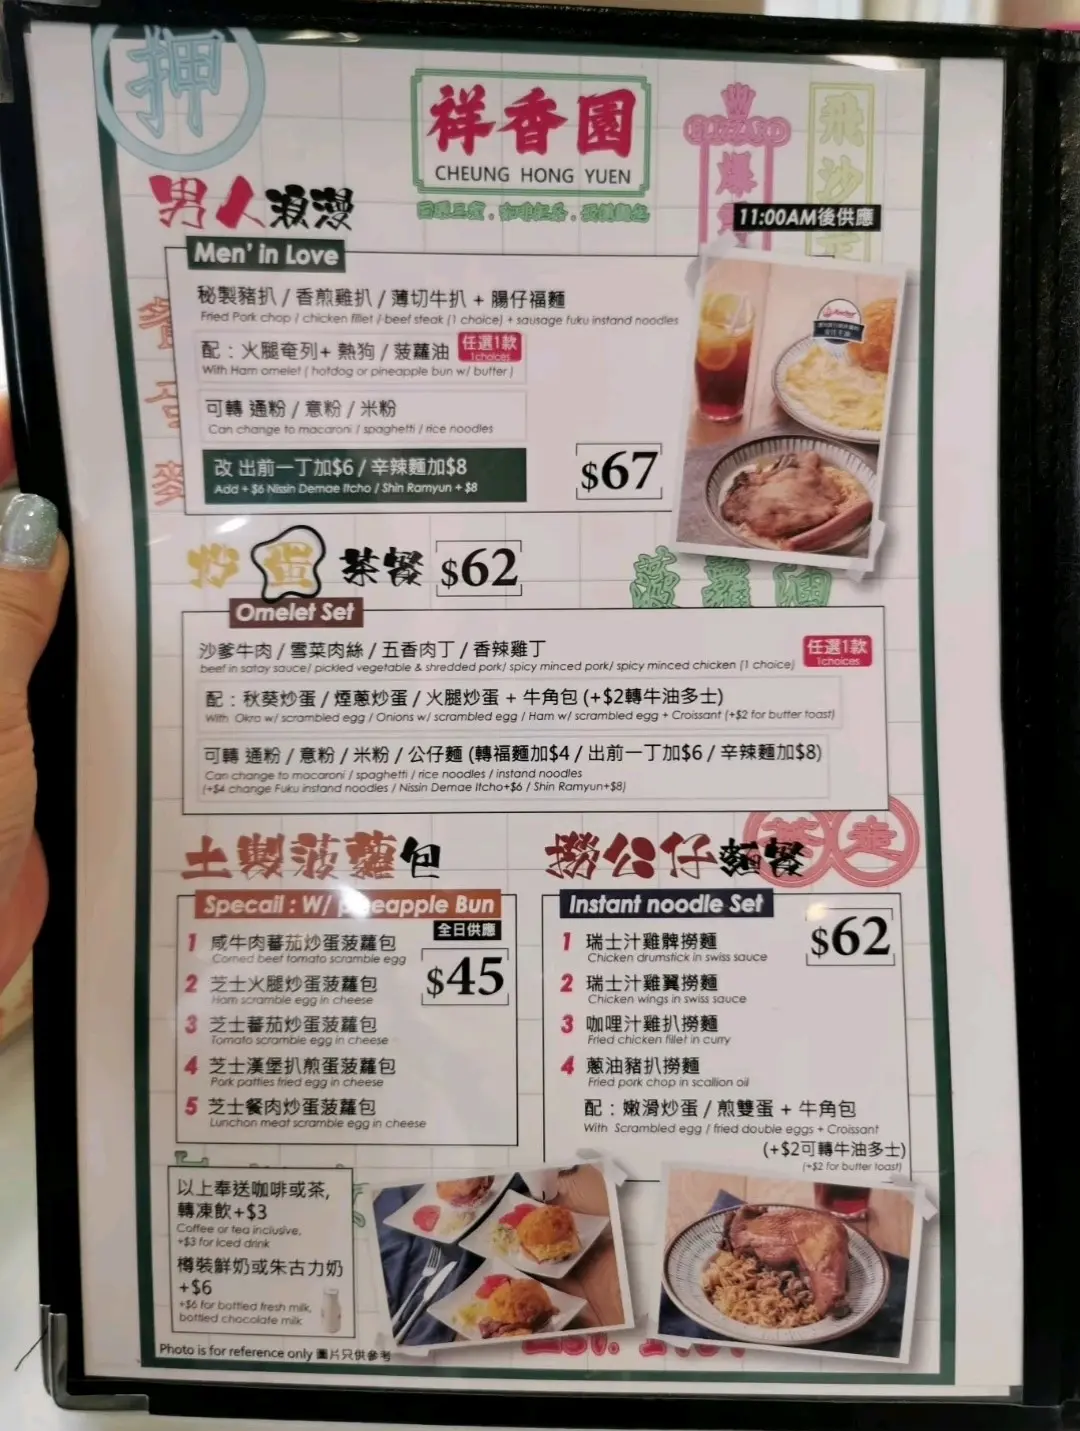 押
祥香園
CHEUNG HONG YUEN
BLIZZARD
飛沙走
11:00AM後供應
男人浪漫
Men' in Love
秘製豬扒 / 香煎雞扒 / 薄切牛扒 + 腸仔福麵
Fried Pork chop / chicken fillet / beef steak (1 choice) + sausage fuku instand noodles
配：火腿奄列+ 熱狗 / 菠蘿油 任選1款
1choices
With Ham omelet ( hotdog or pineapple bun w/ butter )
可轉 通粉 / 意粉 / 米粉
Can change to macaroni / spaghetti / rice noodles
改 出前一丁加$6 / 辛辣麵加$8
Add + $6 Nissin Demae Itcho / Shin Ramyun + $8
$67
炒蛋茶餐 $62
菠蘿油
Omelet Set
沙爹牛肉 / 雪菜肉絲 / 五香肉丁 / 香辣雞丁
beef in satay sauce/ pickled vegetable & shredded pork/ spicy minced pork/ spicy minced chicken (1 choice)
任選1款
1choices
配：秋葵炒蛋 / 煙蔥炒蛋 / 火腿炒蛋 + 牛角包 (+$2轉牛油多士)
With Okra w/ scrambled egg / Onions w/ scrambled egg / Ham w/ scrambled egg + Croissant (+$2 for butter toast)
可轉 通粉 / 意粉 / 米粉 / 公仔麵 (轉福麵加$4 / 出前一丁加$6 / 辛辣麵加$8)
Can change to macaroni / spaghetti / rice noodles / instand noodles
(+$4 change Fuku instand noodles / Nissin Demae Itcho+$6 / Shin Ramyun+$8)
土製菠蘿包
Specail : W/ pineapple Bun
全日供應
$45
1 咸牛肉蕃茄炒蛋菠蘿包
Corned beef tomato scramble egg
2 芝士火腿炒蛋菠蘿包
Ham scramble egg in cheese
3 芝士蕃茄炒蛋菠蘿包
Tomato scramble egg in cheese
4 芝士漢堡扒煎蛋菠蘿包
Pork patties fried egg in cheese
5 芝士餐肉炒蛋菠蘿包
Lunchon meat scramble egg in cheese
撈公仔麵餐
走
Instant noodle Set
$62
1 瑞士汁雞髀撈麵
Chicken drumstick in swiss sauce
2 瑞士汁雞翼撈麵
Chicken wings in swiss sauce
3 咖哩汁雞扒撈麵
Fried chicken fillet in curry
4 蔥油豬扒撈麵
Fried pork chop in scallion oil
配：嫩滑炒蛋 / 煎雙蛋 + 牛角包
With Scrambled egg / fried double eggs + Croissant
(+$2可轉牛油多士)
(+$2 for butter toast)
以上奉送咖啡或茶,
轉凍飲+$3
Coffee or tea inclusive,
+$3 for Iced drink
樽裝鮮奶或朱古力奶
+$6
+$6 for bottled fresh milk,
bottled chocolate milk
Photo is for reference only 圖片只供參考